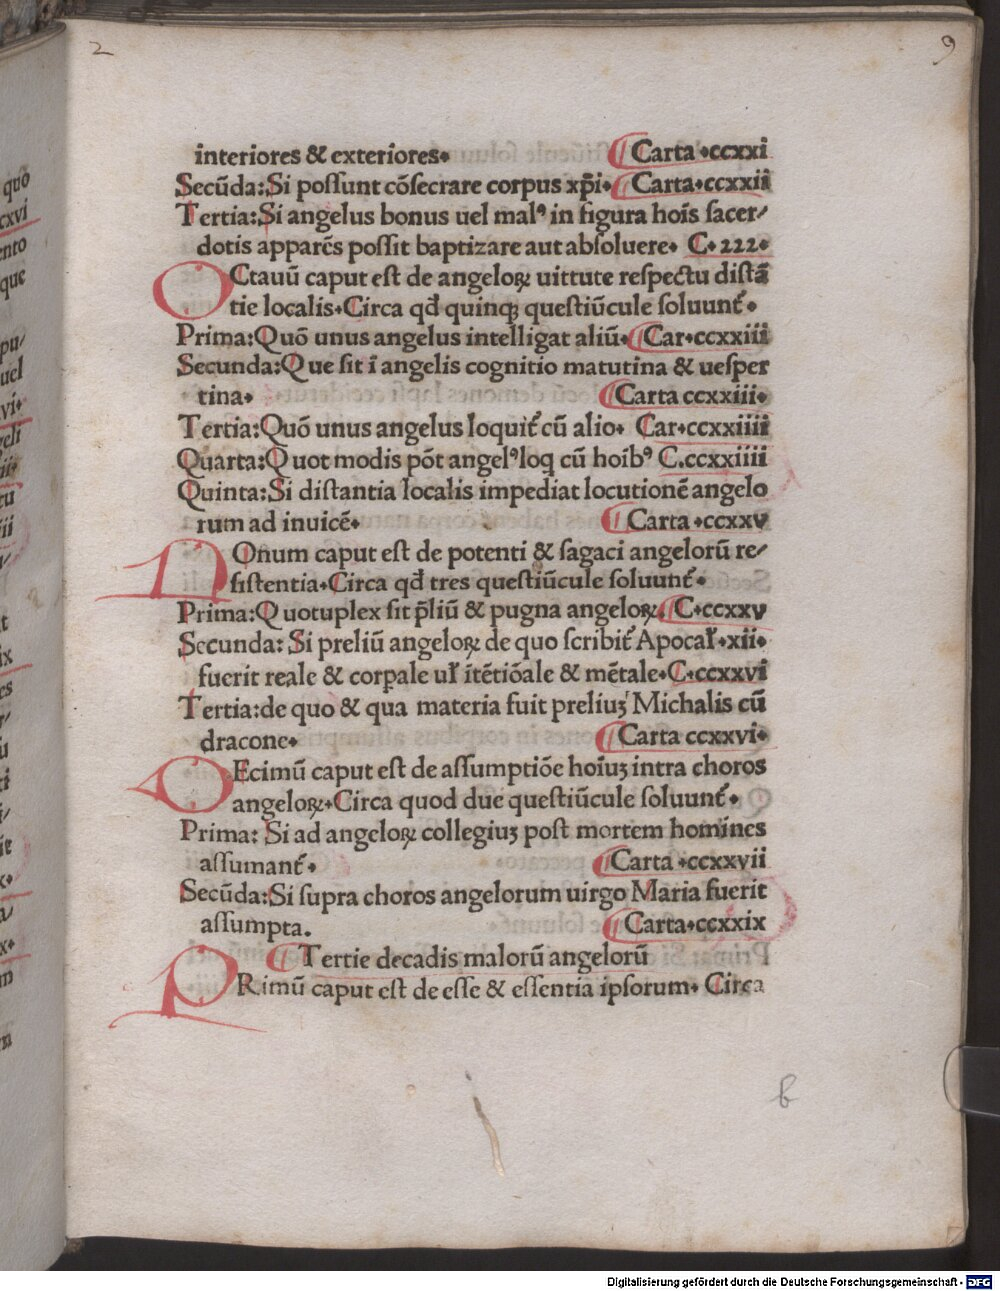 2 9
interiores & exteriores. Carta .ccxxi
Secūda: Si possunt cōsecrare corpus xp̄i. Carta.ccxxii
Tertia: Si angelus bonus uel malꝰ in figura hoīs sacer/
dotis apparēs possit baptizare aut absoluere. C. 222.
OCtauū caput est de angeloꝝ uittute respectu distā
tie localis. Circa qđ quinqꝫ questiūcule soluunt̄.
Prima: Quō unus angelus intelligat aliū. Car.ccxxiii
Secunda: Que sit ī angelis cognitio matutina & uesper
tina. Carta ccxxiii.
Tertia: Quō unus angelus loquit̄ cū alio. Car.ccxxiiii
Quarta: Quot modis pōt angelꝰ loq cū hoībꝰ C.ccxxiiii
Quinta: Si distantia localis impediat locutionē angelo
rum ad inuicē. Carta .ccxxv
NOnum caput est de potenti & sagaci angelorū re/
sistentia. Circa qđ tres questiūcule soluunt̄.
Prima: Quotuplex sit p̄liū & pugna angeloꝝ. C.ccxxv
Secunda: Si preliū angeloꝝ de quo scribit̄ Apocał.xii.
fuerit reale & corpale uł ītētiōale & mētale. C.ccxxvi
Tertia: de quo & qua materia fuit preliuꝫ Michalis cū
dracone. Carta ccxxvi.
DEcimū caput est de assumptiōe hoīuꝫ intra choros
angeloꝝ. Circa quod due questiūcule soluunt̄.
Prima: Si ad angeloꝝ collegiuꝫ post mortem homines
assumant̄. Carta .ccxxvii
Secūda: Si supra choros angelorum uirgo Maria fuerit
assumpta. Carta.ccxxix
Tertie decadis malorū angelorū
PRimū caput est de esse & essentia ipsorum. Circa
b
Digitalisierung gefördert durch die Deutsche Forschungsgemeinschaft - DFG